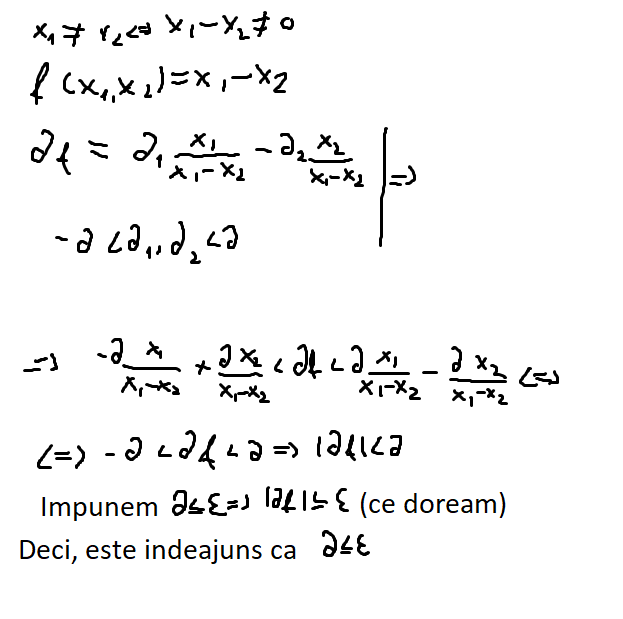 x₁ ≠ x₂ <=> x₁-x₂ ≠ 0
f (x₁,x₂) = x₁-x₂
∂f = ∂₁ x₁/(x₁-x₂) - ∂₂ x₂/(x₁-x₂) | =>
-∂ < ∂₁, ∂₂ < ∂
=> -∂ x₁/(x₁-x₂) + ∂ x₂/(x₁-x₂) < ∂f < ∂ x₁/(x₁-x₂) - ∂ x₂/(x₁-x₂) <=>
<=> -∂ < ∂f < ∂ => |∂f| < ∂
Impunem ∂ ≤ ε => |∂f| ≤ ε (ce doream)
Deci, este indeajuns ca ∂ ≤ ε